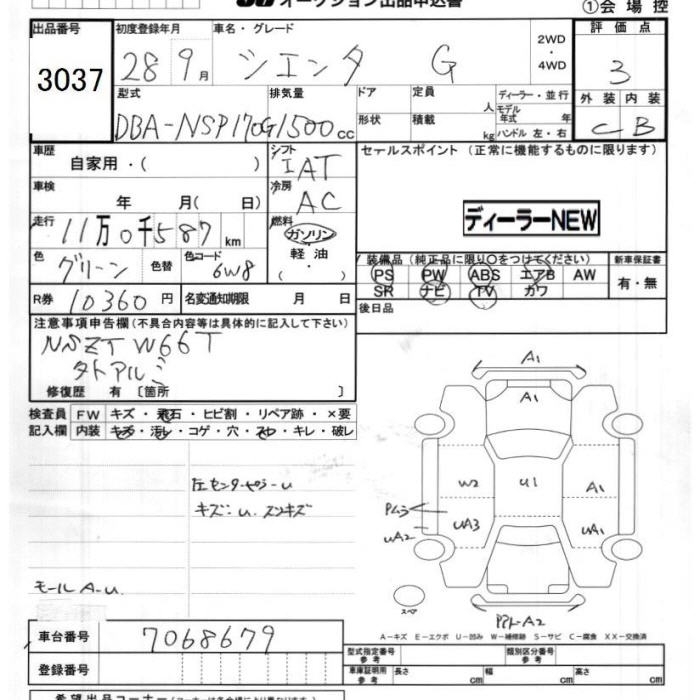 オークション出品申込書
①会場控
出品番号 初度登録年月 車名・グレード 2WD・4WD 評価点
3037 28 9月 シエンタ G 3
外装 内装
C B
型式 排気量 ドア 定員 人 ディーラー・並行
DBA-NSP170G 1500cc 形状 積載 kg モデル年式 年
ハンドル 左・右
車歴 シフト セールスポイント (正常に機能するものに限ります)
自家用・( ) IAT
車検 冷房
年 月( 日) AC
走行 燃料 ディーラーNEW
11万0千587km ガソリン
軽油
・
色 色替 色コード 装備品(純正品に限り○をつけてください) 新車保証書
グリーン 6W8 PS PW ABS エアB AW 有・無
SR ナビ TV カワ
R券 10360円 名変通知期限 月 日 後日品
注意事項申告欄(不具合内容等は具体的に記入して下さい)
NSZT W66T
タトアルミ
修復歴 有 [箇所 ]
検査員 FW キズ・飛石・ヒビ割・リペア跡・×要
記入欄 内装 キズ・汚レ・コゲ・穴・スレ・キレ・破レ
A1
A1
W2 U1 A1
UA3 UA1
UA2
キズ:U.スンキズ
モールA-U.
スペア
A2
A-キズ E-エクボ U-凹み W-補修跡 S-サビ C-腐食 XX-交換済
車台番号 7068679 型式指定番号 参考 類別区分番号 参考
登録番号 車庫証明用 参考 長さ cm 幅 cm 高さ cm
希望出品コーナー